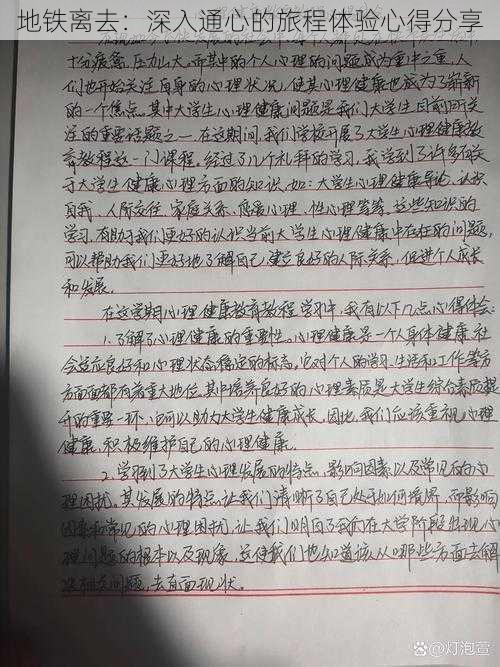 地铁离去：深入通心的旅程体验心得分享
十分疲惫，压力山大，而其中的个人心理的问题成为重中之重，人
们也开始关注自身的心理状况，使其心理健康也成为了崭新
的一个焦点。其中大学生心理健康问题是我们大学生目前所关
注的重要话题之一，在这期间，我们学校开展了大学生心理健康教
育教程这一门课程，经过了几个礼拜的学习，我学到了许多有关
于大学生健康心理方面的知识，如：大学生心理健康导论，认识
自我、人际交往、家庭关系、恋爱心理、性心理等等，这些知识的
学习，有助于我们更好的认识当前大学生心理健康中存在的问题，
可以帮助我们更好地了解自己，建立良好的人际关系，促进个人成长
和发展。
在这学期心理健康教育教程学习中，我有以下几点心得体会：
1.了解了心理健康的重要性。心理健康是一个人身体健康，社
会适应良好和心理状态稳定的标志。它对个人的学习、生活和工作等方
方面面都有着重大地位，其中培养良好的心理素质是大学生综合素质提
升的重要一环，它可以助力大学生健康成长。因此，我们应该重视心理
健康，积极维护自己的心理健康。
2.学习到了大学生心理发展的特点，影响因素以及常见的心
理困扰。其发展的特点，让我们清晰了自己处于如何境界，而影响
因素和常见的心理困扰，让我们明白了我们在大学阶段出现心
理问题的根本以及现象，这使我们也知道该从哪些方面去解
决相关问题，去直面现状。
Bai百度 @灯泡萱